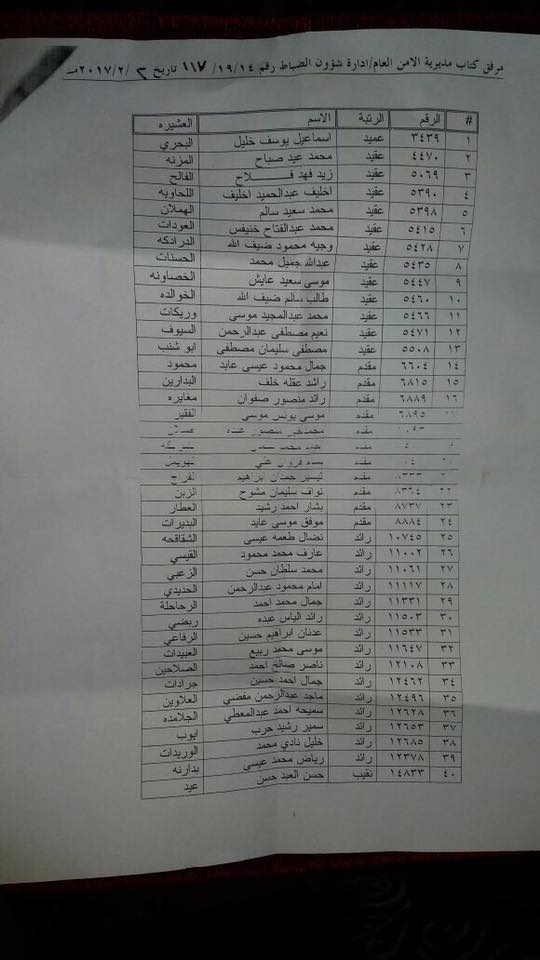 مرفق كتاب مديرية الامن العام/ادارة شؤون الضباط رقم ١٩/١٤/ ١١٧ تاريخ ٢ /٢/ ٢٠١٧مـ
# الرقم الرتبة الاسم العشيره
١ ٣٤٣٩ عميد اسماعيل يوسف خليل البحري
٢ ٤٤٧٠ عقيد محمد عيد صباح المزنه
٣ ٥٠٦٩ عقيد زيد فهد فـــــلاح الفالح
٤ ٥٣٩٠ عقيد اخليف عبدالحميد اخليف اللحاويه
٥ ٥٣٩٨ عقيد محمد سعيد سالم الهملان
٦ ٥٤١٥ عقيد محمد عبدالفتاح خنيفس العودات
٧ ٥٤٢٨ عقيد وجيه محمود ضيف الله الدرادكه
٨ ٥٤٣٥ عقيد عبدالله جميل محمد الحسنات
٩ ٥٤٤٧ عقيد موسى سعيد عايش الخصاونه
١٠ ٥٤٦٠ عقيد طالب سالم ضيف الله الخوالده
١١ ٥٤٦٦ عقيد محمد عبدالمجيد موسى وريكات
١٢ ٥٤٧١ عقيد نعيم مصطفى عبدالرحمن السيوف
١٣ ٥٥٠٨ عقيد مصطفى سليمان مصطفى ابو شنب
١٤ ٦٦٠٤ مقدم جمال محمود عيسى عابد محمود
١٥ ٦٨١٥ مقدم راشد عقله خلف البدارين
١٦ ٦٨٨٩ مقدم رائد منصور صفوان مغايره
٦٨٩٥ مقدم موسى يونس موسى الفقير
مقدم منصور
مقدم
مقدم
مقدم تيسير حمدان ابراهيم
٨٣٦٤ مقدم نواف سليمان مشوح الزبن
٢٣ ٨٧٣٧ مقدم بشار احمد رشيد العطار
٢٤ ٨٨٨٤ مقدم موفق موسى عابد البديرات
٢٥ ١٠٧٤٥ رائد نضال طعمه عيسى الشقاقحه
٢٦ ١١٠٠٢ رائد عارف محمد محمود القيسي
٢٧ ١١٠٦١ رائد محمد سلطان حسن الزعبي
٢٨ ١١١١٧ رائد امام محمود عبدالرحمن الحديدي
٢٩ ١١٣٣١ رائد جمال محمد احمد الرحاحلة
٣٠ ١١٥٠٣ رائد رائد الياس عبده ربضي
٣١ ١١٥٣٣ رائد عدنان ابراهيم حسين الرفاعي
٣٢ ١١٦٤٧ رائد موسى محمد ربيع العبيدات
٣٣ ١٢١٠٨ رائد ناصر صالح احمد الصلاحين
٣٤ ١٢٤٦٢ رائد جمال احمد حسين جرادات
٣٥ ١٢٤٩٦ رائد ماجد عبدالرحمن مفضي العلاوين
٣٦ ١٢٦٢٨ رائد سميحه احمد عبدالمعطي الجلامده
٣٧ ١٢٦٥٣ رائد سمير رشيد حرب ايوب
٣٨ ١٢٦٨٥ رائد خليل نادي محمد الوريدات
٣٩ ١٢٣٧٨ رائد رياض محمد عيسى بدارنه
٤٠ ١٤٨٣٣ نقيب حسن العبد حسن عيد